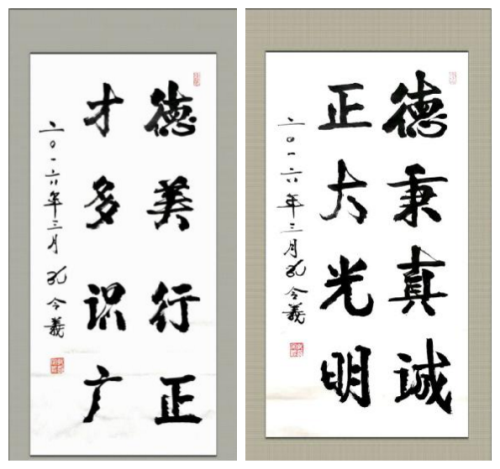 德美行正
才多识广
二〇一六年三月孔令义
德秉真诚
正大光明
二〇一六年三月孔令義